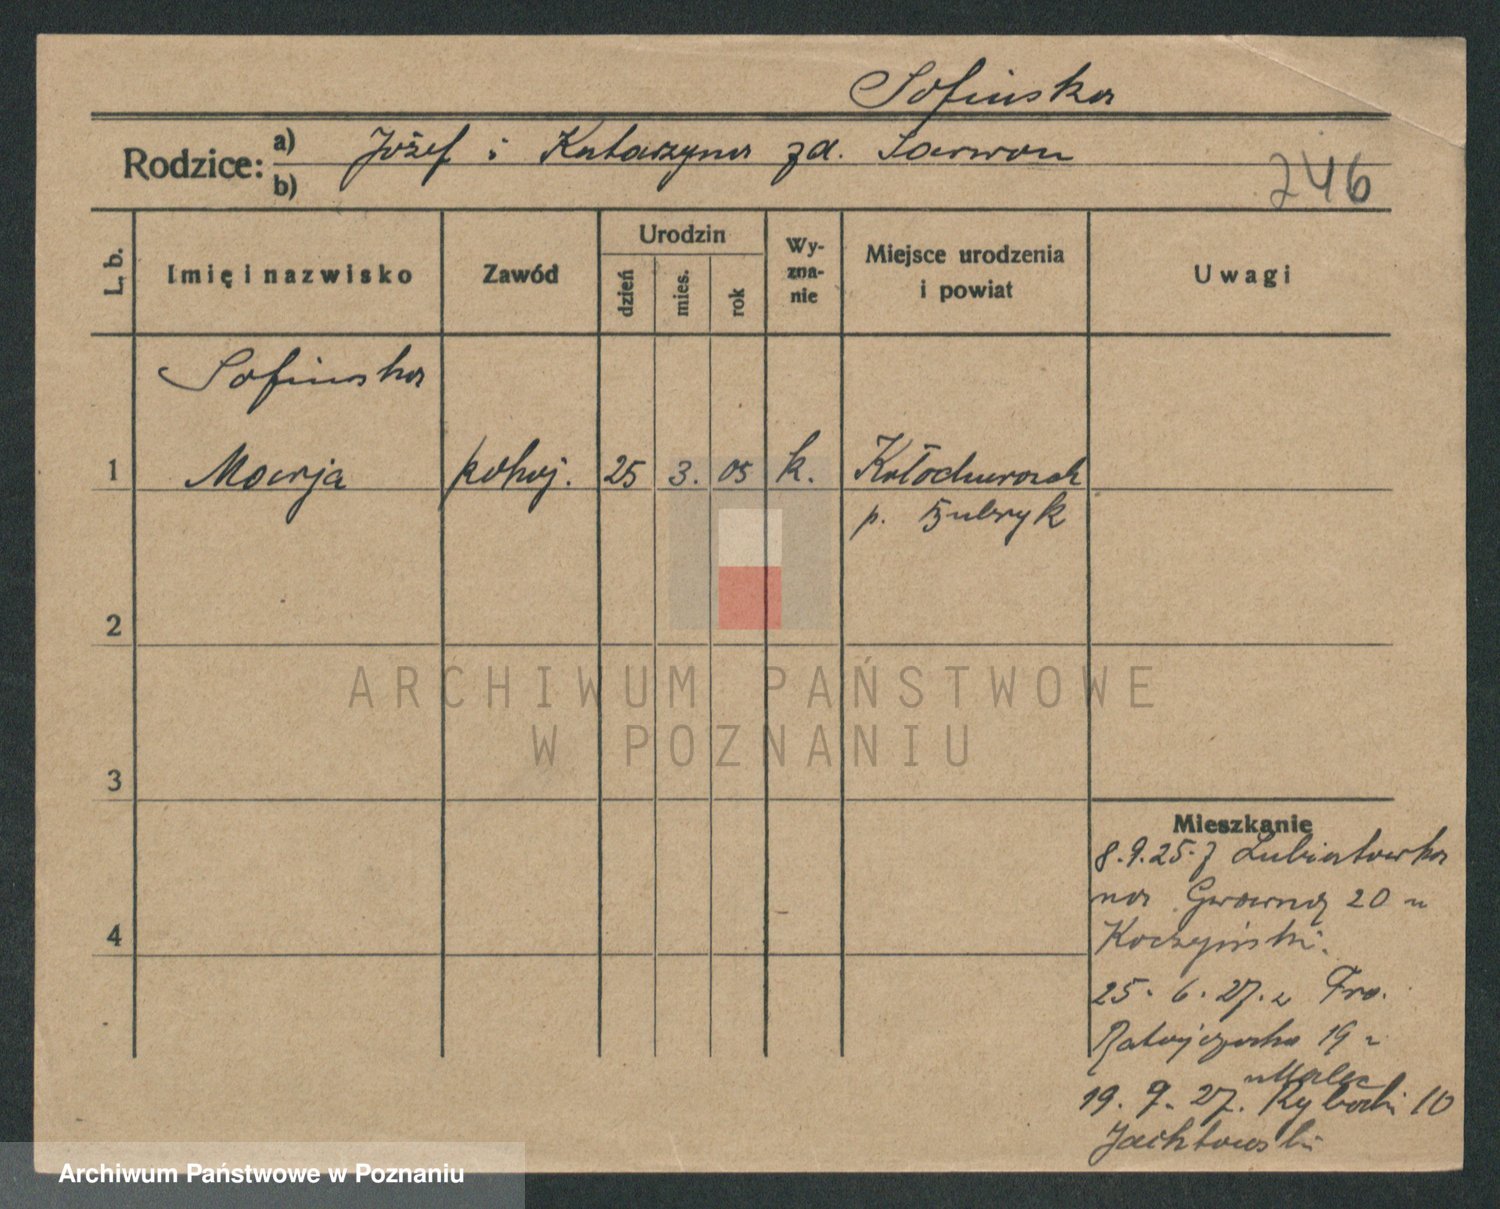 Sofińska
Rodzice: a) Józef i Katarzyna zd. Sarwan
b)
246
L. b.
Imię i nazwisko
Zawód
Urodzin
dzień
mies.
rok
Wy-
zna-
nie
Miejsce urodzenia
i powiat
Uwagi
Sofińska
1 Marja pokoj. 25 3. 05 k.
p.
2
3
4
ARCHIWUM PAŃSTWOWE
W POZNANIU
Mieszkanie
8.9.25. z Lubiatówka
na 20 u
25. 6. 27. Fra.
Ratajczaka 19
19. 9. 27. Rybaki 10
Jachtowski
Archiwum Państwowe w Poznaniu